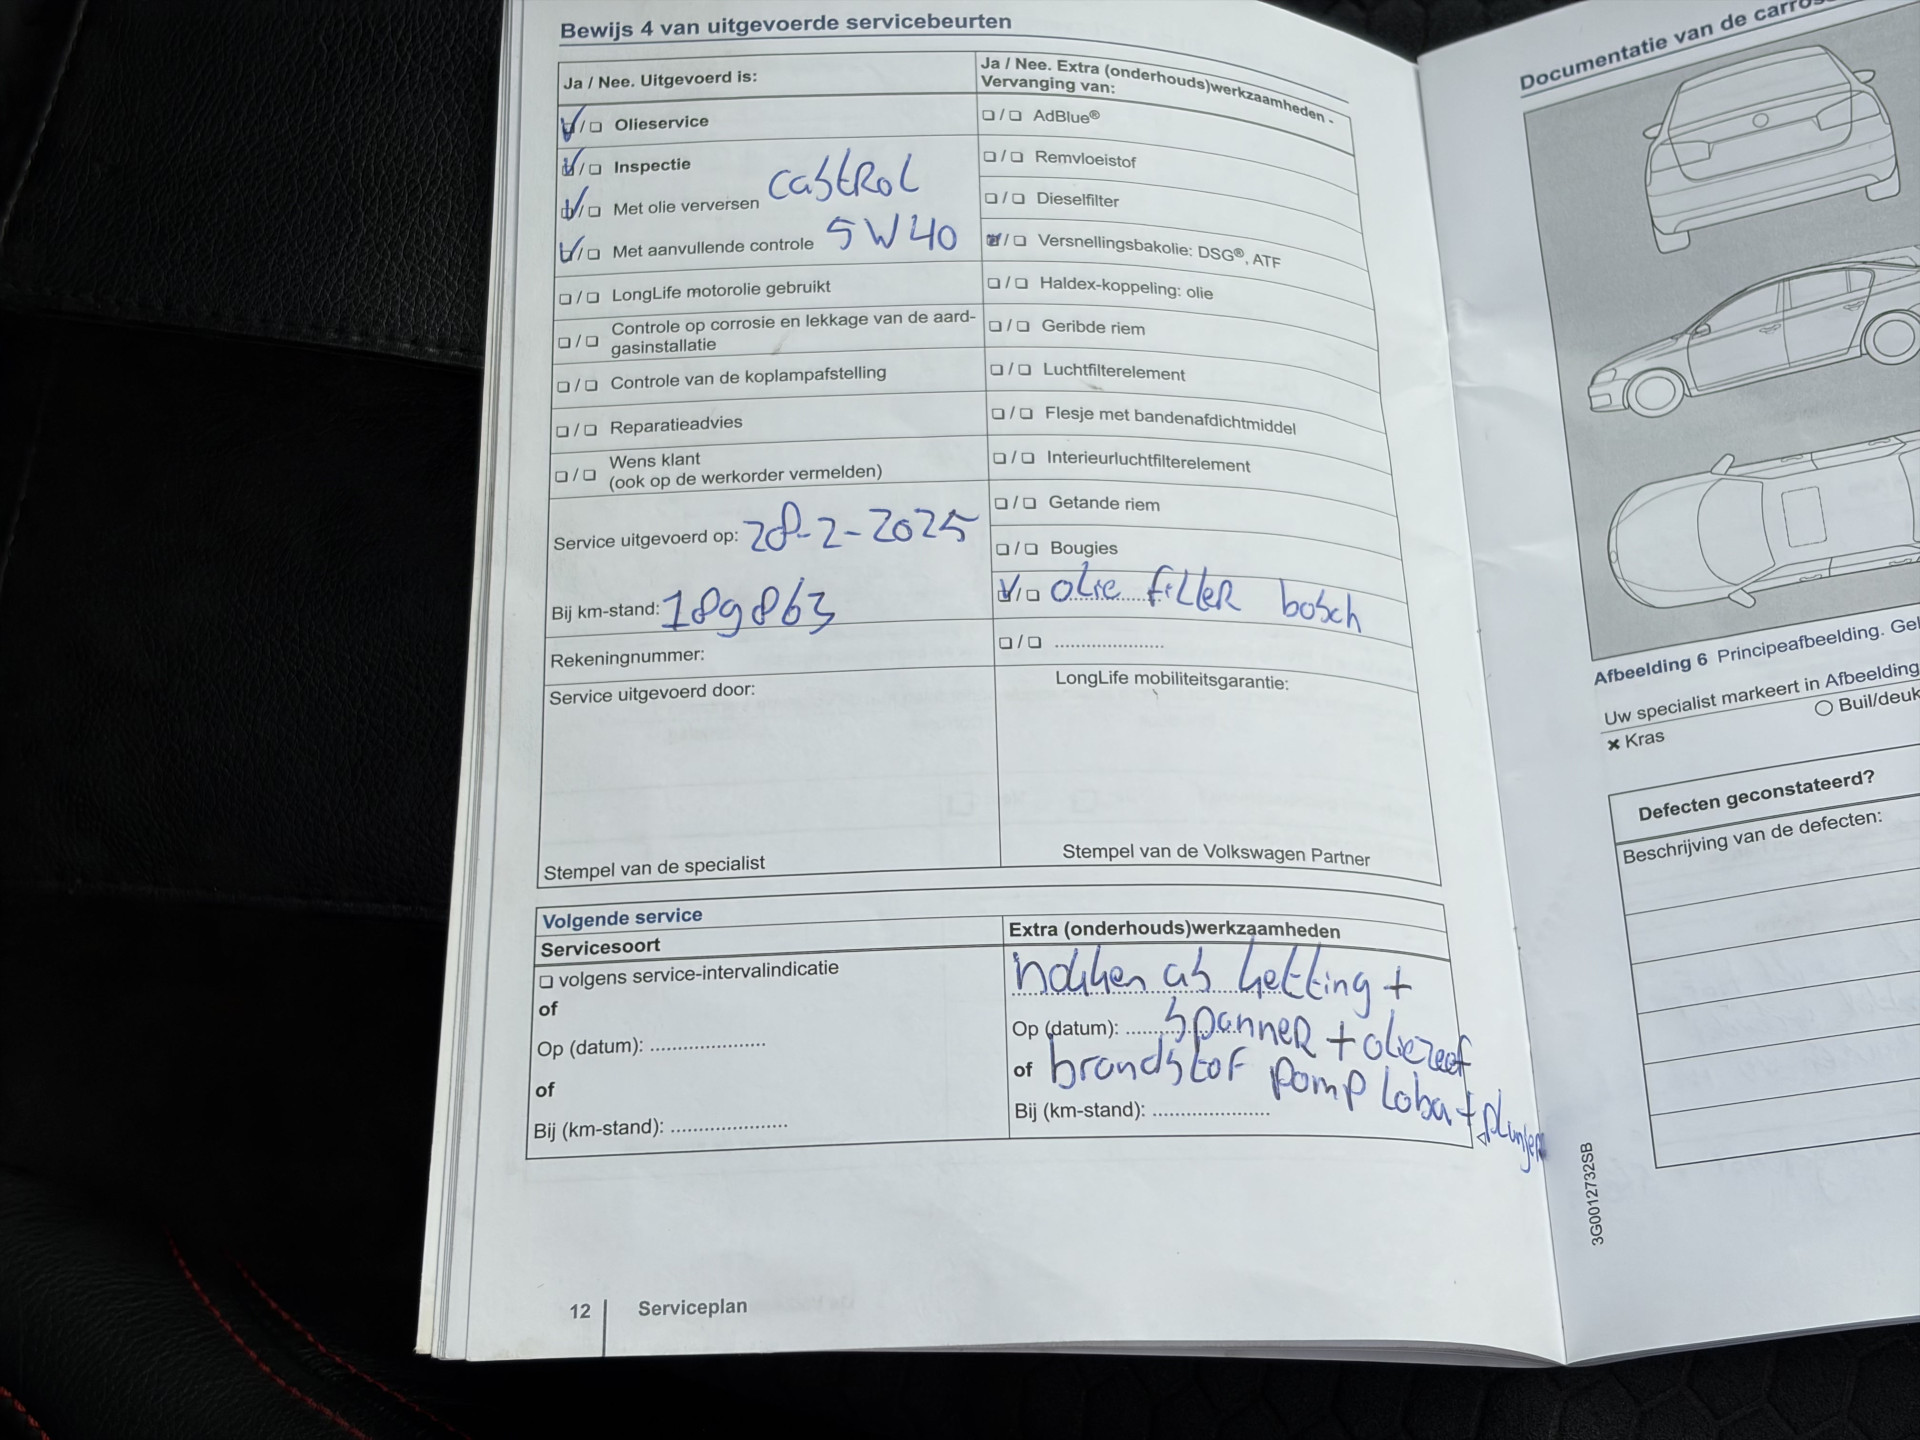 Bewijs 4 van uitgevoerde servicebeurten
Ja / Nee. Uitgevoerd is:
/ Olieservice
/ Inspectie
/ Met olie verversen castRol
/ Met aanvullende controle 5W40
/ LongLife motorolie gebruikt
/ Controle op corrosie en lekkage van de aard-
gasinstallatie
/ Controle van de koplampafstelling
/ Reparatieadvies
/ Wens klant
(ook op de werkorder vermelden)
Service uitgevoerd op: 28-2-2025
Bij km-stand: 189863
Rekeningnummer:
Service uitgevoerd door:
Stempel van de specialist
Ja / Nee. Extra (onderhouds)werkzaamheden -
Vervanging van:
/ AdBlue®
/ Remvloeistof
/ Dieselfilter
/ Versnellingsbakolie: DSG®, ATF
/ Haldex-koppeling: olie
/ Geribde riem
/ Luchtfilterelement
/ Flesje met bandenafdichtmiddel
/ Interieurluchtfilterelement
/ Getande riem
/ Bougies
/ olie filteR bosch
/ ....................
LongLife mobiliteitsgarantie:
Stempel van de Volkswagen Partner
Volgende service
Servicesoort
volgens service-intervalindicatie
of
Op (datum): ....................
of
Bij (km-stand): ....................
Extra (onderhouds)werkzaamheden
nokken as ketting +
Op (datum): ........ spanneR + oliezeef
of brandstof pomp Loba + plunjeR
Bij (km-stand): ....................
12 Serviceplan
Documentatie van de
Afbeelding 6 Principeafbeelding.
Uw specialist markeert in Afbeelding
Buil/deuk
Kras
Defecten geconstateerd?
Beschrijving van de defecten:
3G0012732SB